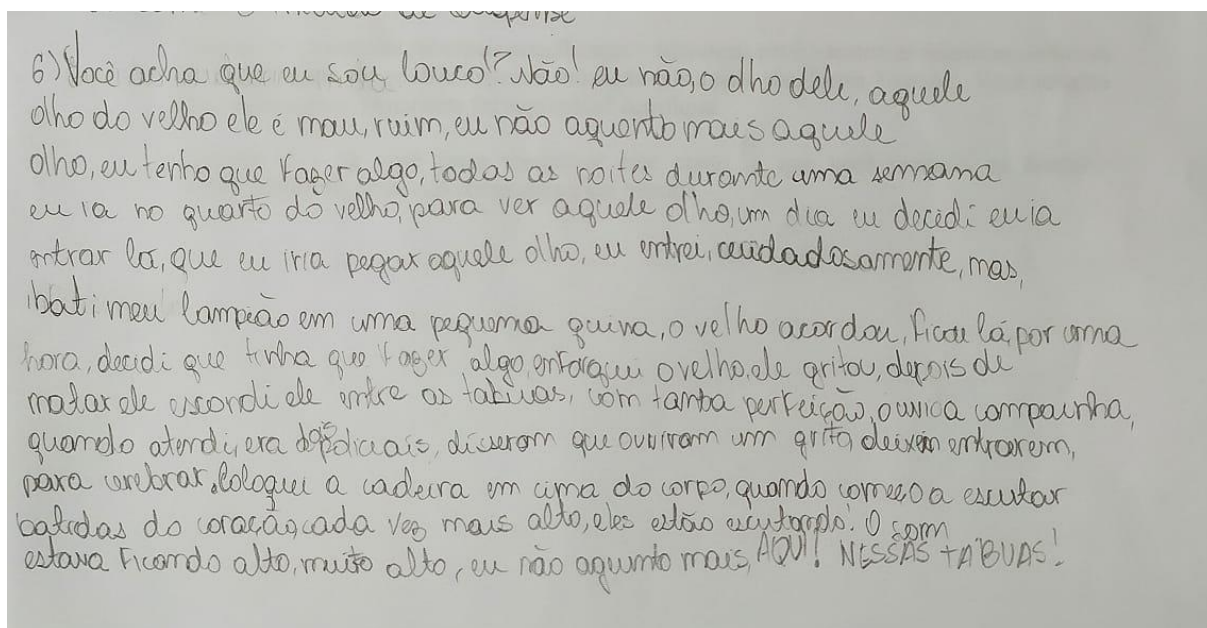 de suspense
6) Você acha que eu sou louco!? Não! eu não, o olho dele, aquele
olho do velho ele é mau, ruim, eu não aguento mais aquele
olho, eu tenho que fazer algo, todas as noites durante uma semana
eu ia no quarto do velho, para ver aquele olho, um dia eu decidi eu ia
entrar lá, que eu iria pegar aquele olho, eu entrei, cuidadosamente, mas,
bati meu lampião em uma pequena quina, o velho acordou, ficou lá, por uma
hora, decidi que tinha que fazer algo, enforquei o velho, ele gritou, depois de
matar ele escondi ele entre as tabuas, com tamba perfeição, ouvi a campainha,
quando atendi, era policiais, diseram que ouviram um grito, deixei entrarem,
para Coloquei a cadeira em cima do corpo, quando começo a escutar
batidas do coração, cada vez mais alto, eles estão escutando! O som
estava ficando alto, muito alto, eu não aguento mais, AQUI! NESSAS TÁBUAS!